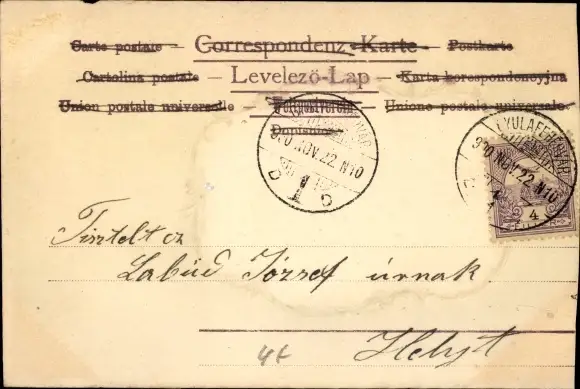 Carte postale – Correspondenz-Karte – Postkarte
Cartolina postale – Levelező-Lap – Karta korespondencyjna
Union postale universelle – Weltpostverein – Unione postale universale
GYULAFEHÉRVÁR
900 NOV. 22 N10
GYULAFEHÉRVÁR
900 NOV. 22 N10
4
Tisztelt cz
József úrnak
Helyt